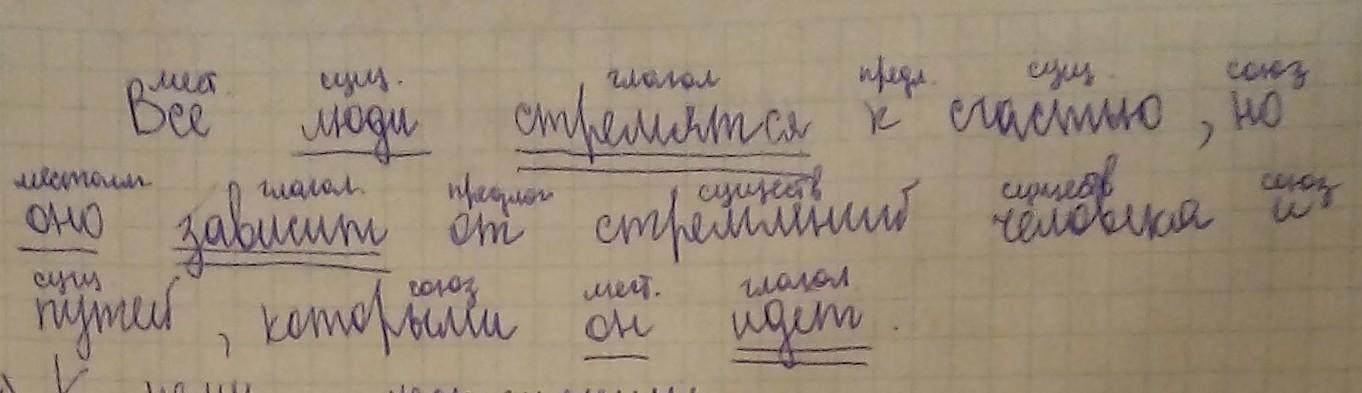 мест. сущ. глагол предл. сущ. союз
Все люди стремятся к счастью, но
местоим. глагол. предлог существ существ союз
оно зависит от стремлений человека и
сущ союз мест. глагол
путей, которыми он идет.